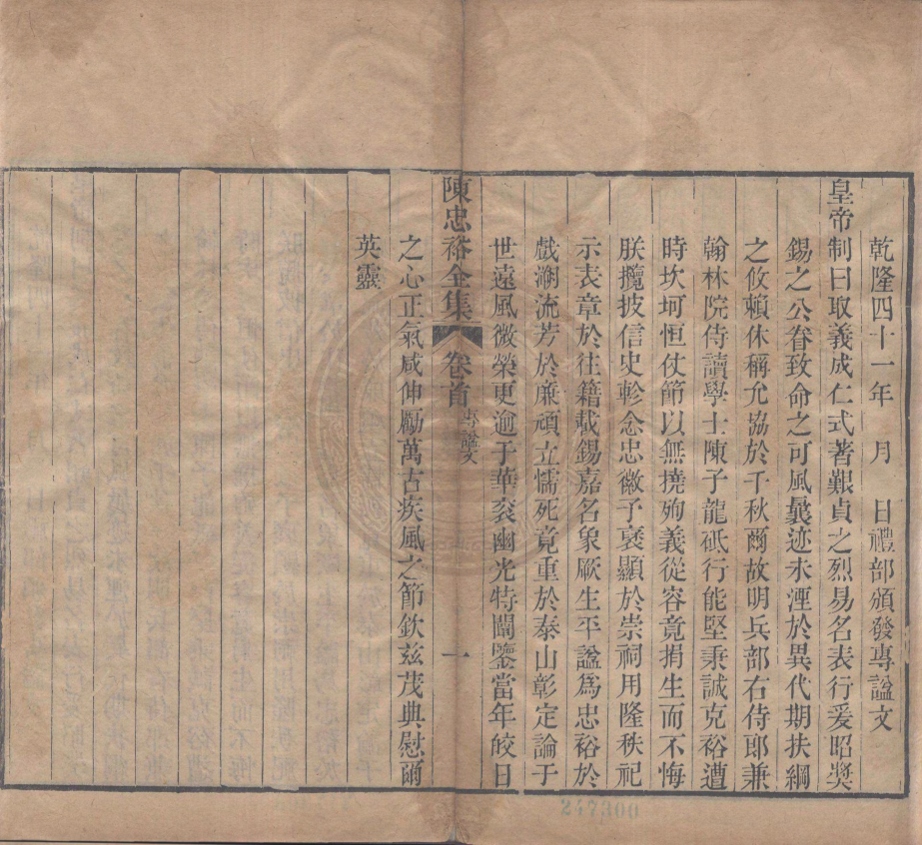 乾隆四十一年　月　日禮部頒發專諡文
皇帝制曰取義成仁式著艱貞之烈易名表行爰昭獎
錫之公眷致命之可風曩迹未湮於異代期扶綱
之攸賴休稱允協於千秋爾故明兵部右侍郎兼
翰林院侍讀學士陳子龍砥行能堅秉誠克裕遭
時坎坷恒仗節以無撓殉義從容竟捐生而不悔
朕攬披信史軫念忠徽予褒顯於崇祠用隆秩祀
示表章於往籍載錫嘉名象厥生平諡爲忠裕於
戲溯流芳於廉頑立懦死竟重於泰山彰定論于
世遠風微榮更逾于華袞幽光特闡鑒當年皎日
陳忠裕全集　卷首　專諡文　一
之心正氣咸伸勵萬古疾風之節欽兹茂典慰爾
英靈
247300